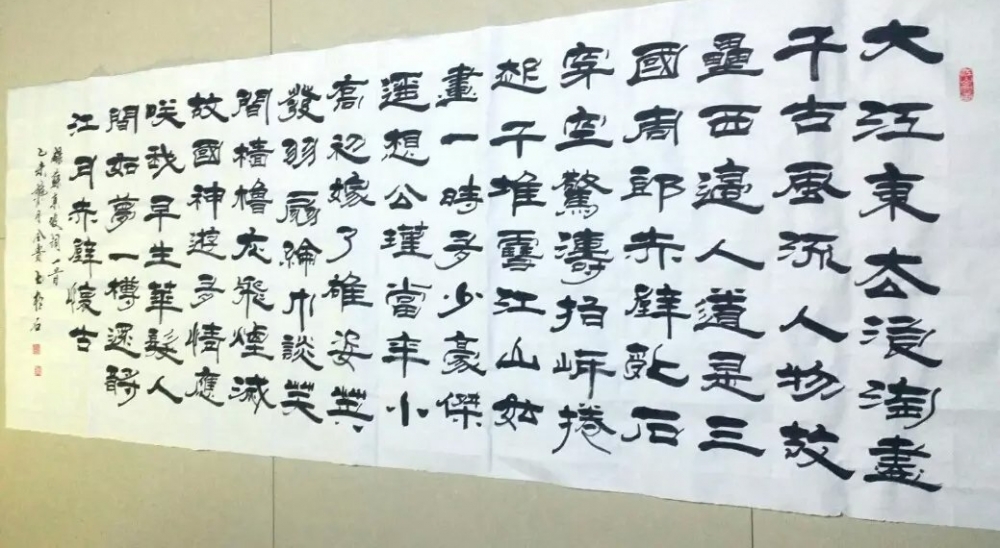 大江東去浪淘盡
千古風流人物故
壘西邊人道是三
國周郎赤壁亂石
穿空驚濤拍岸捲
起千堆雪江山如
畫一時多少豪傑
遙想公瑾當年小
喬初嫁了雄姿英
發羽扇綸巾談笑
間檣櫓灰飛煙滅
故國神遊多情應
咲我早生華髮人
間如夢一樽還酹
江月赤壁懷古
錄蘇東坡詞一首
乙未